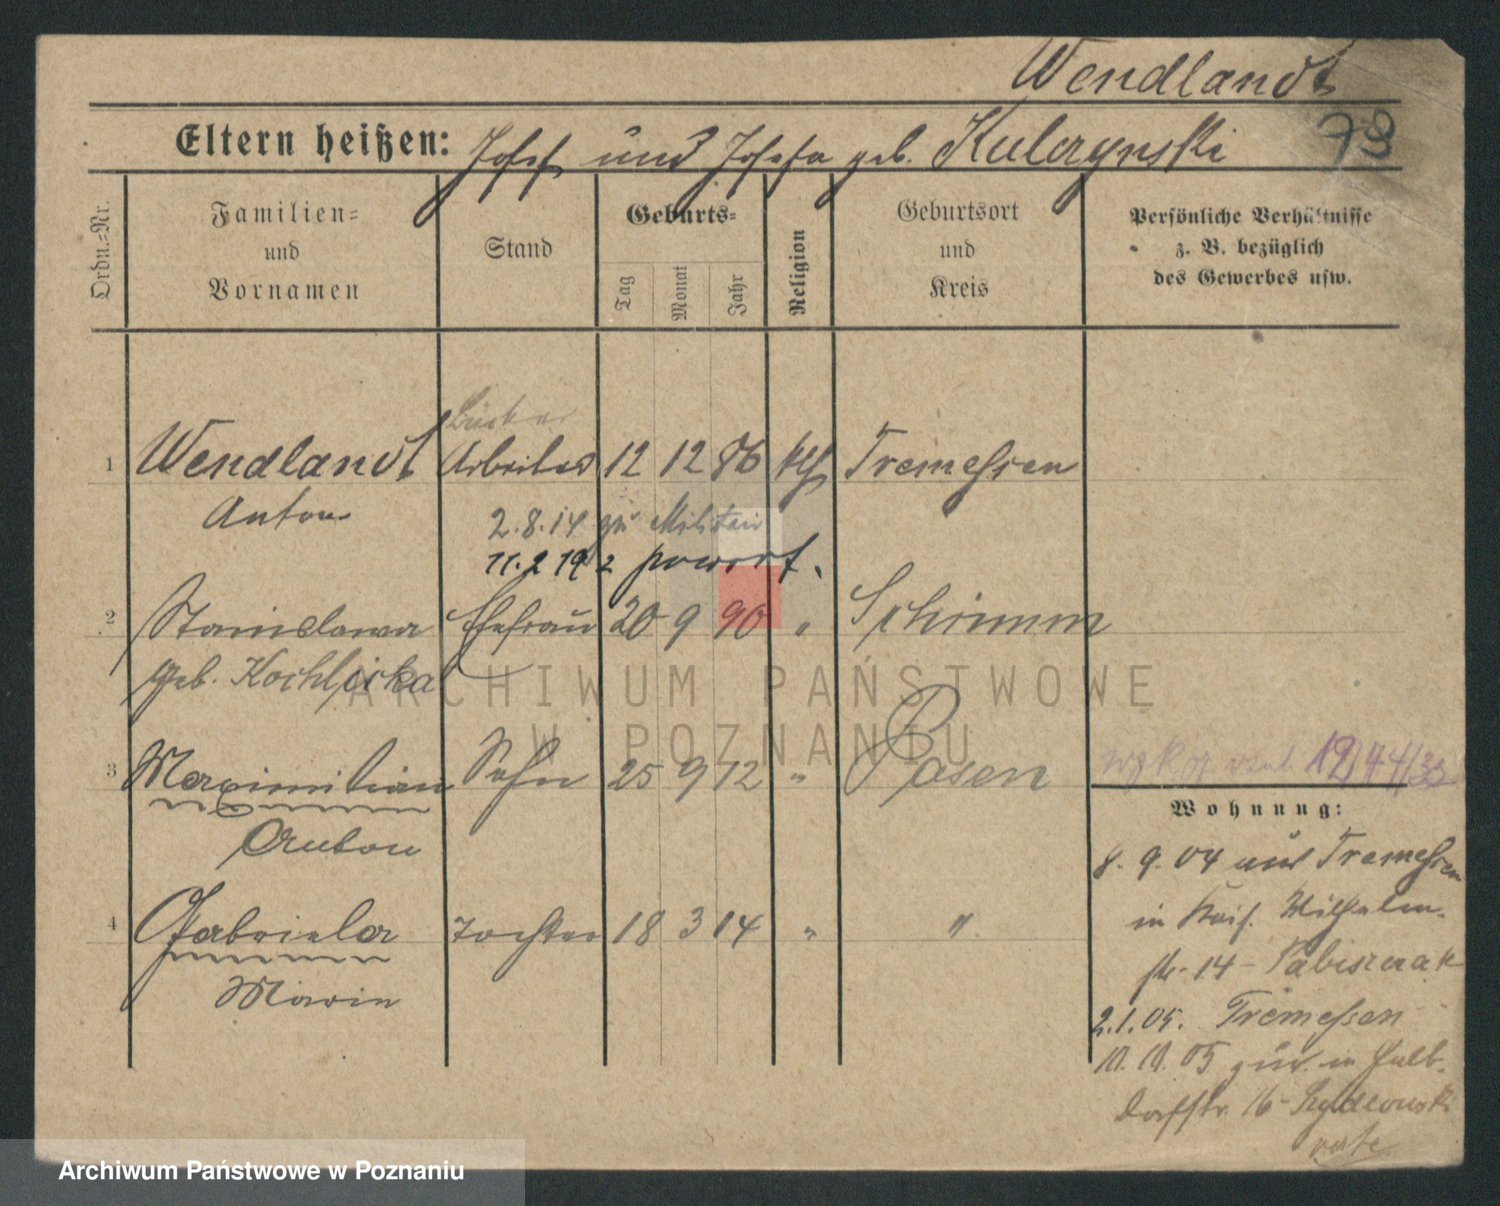 Wendlandt
73
Eltern heißen: Josef und Josefa geb. Kulczynski
Ordn.-Nr.
Familien-
und
Vornamen
Stand
Geburts-
Tag
Monat
Jahr
Religion
Geburtsort
und
Kreis
Persönliche Verhältnisse
z. B. bezüglich
des Gewerbes usw.
1 Wendlandt Arbeiter 12 12 86 kth Tremessen
Anton
2.8.14 zu Militair
11.2 19 2 powort.
2 Stanislawa Ehefrau 20 9 90 " Schrimm
geb. Kochlicka
3 Maximilian Sohn 25 9 12 " Posen
Anton
4 Gabriela Tochter 18 3 14 " "
Maria
12/44/33
Wohnung:
8. 9. 04 aus Tremessen
in Kais. Wilhelm-
str. 14 - Pabiszczak
2.1.05. Tremessen
10.10.05 zur. in Halb-
dorfstr. 16 - Szydlowski
ARCHIWUM PAŃSTWOWE
W POZNANIU
Archiwum Państwowe w Poznaniu